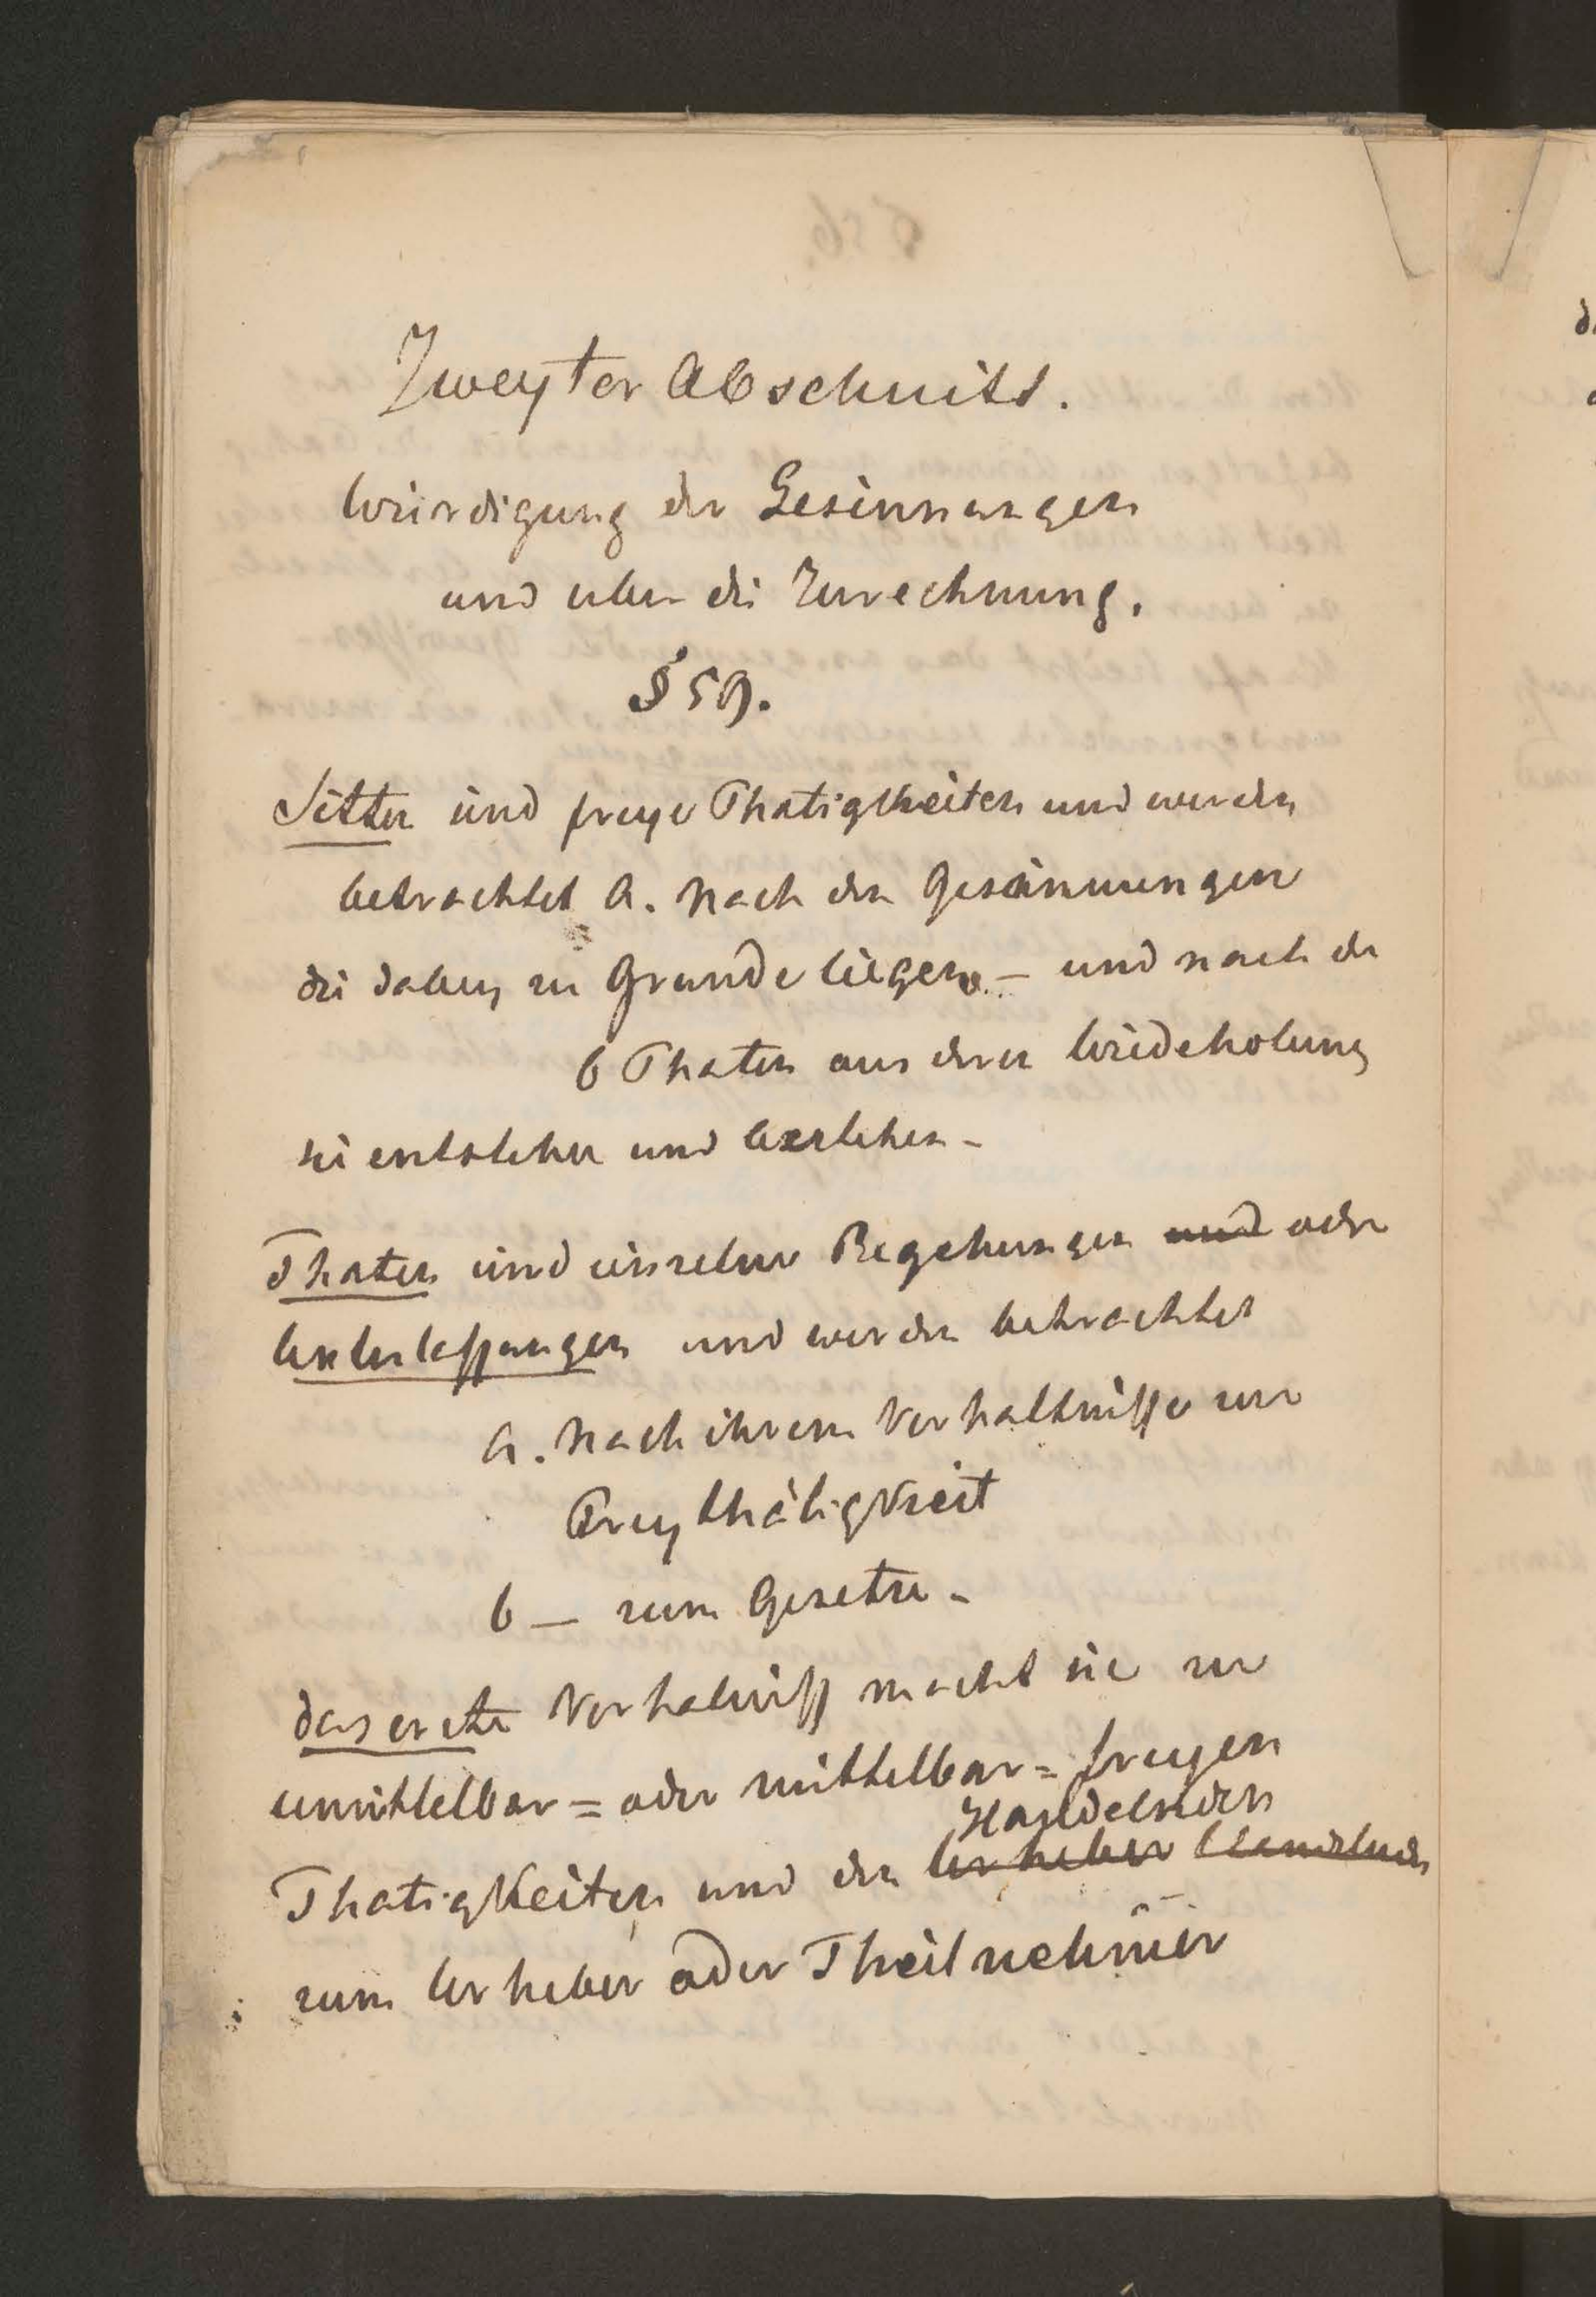 Zweyter Abschnitt.
Würdigung der Gesinnungen
und uber die Zurechnung.
§ 59.
Sitten sind freye Thatigkeiten und werden
betrachtet a. Nach den Gesinnungen
die dabey zu Grunde liegen – und nach den
b Thaten aus deren Wiedeholung
sie entstehen und bestehen –
Thaten sind einzelne Begehungen und oder
Unterlassungen und werden betrachtet
a. Nach ihrem Verhaltnisse zur
Freythätigkeit
b – zum Gesetze –
das erste Verhalniss macht sie zu
unmittelbar = oder mittelbar = freyen
Handelnden
Thatigkeiten und den Urheber Handelnden
zum Urheber oder Theilnehmer